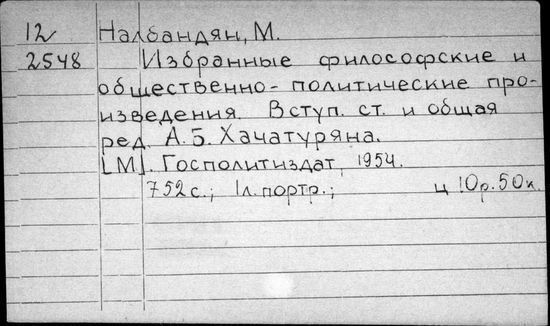 12 Налбандян, М.
2548 Избранные философские и
общественно-политические про-
изведения. Вступ. ст. и общая
ред. А. Б. Хачатуряна.
[М]. Госполитиздат, 1954.
752 с.; 1 л. портр.; ц 10 р. 50 к.